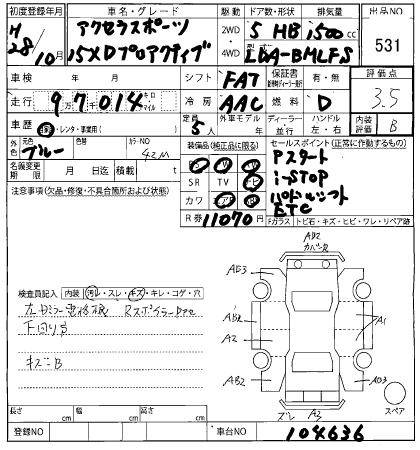 初度登録年月 車名・グレード 駆動 ドア数・形状 排気量 出品NO
H28/10月 アクセラスポーツ 2WD 5 HB 1500cc 531
15XDプロアクティブ 4WD LDA-BMLFS
車検 年 月 シフト FAT 保証書 有・無 評価点
走行 97千014 キロ マイル 冷房 AAC 燃料 D 3.5
車歴 自家・レンタ・事業用( ) 定員 5人 外車モデル 年 ディーラー 並行 ハンドル 左・右 内装評価 B
外色 元色 ブルー 色替 カラーNO 42M 装備品(純正品に限る) セールスポイント(正常に作動するもの)
名義変更期限 月 日迄 積載 t SR TV ナビ Pスタート
注意事項(欠品・修復・不具合箇所および状態) カワ エアB i-STOP
パドルシフト
R券 11070円 ETC
Fガラス トビ石・キズ・ヒビ・ワレ・リペア跡
AB2
カバーA
AB3
検査員記入 内装 汚レ・スレ・キズ・キレ・コゲ・穴
AB2 A1
下回りサ A2
キズ=B
AB2 AD3
ズレ A3 スペア
長さ cm 幅 cm 高さ cm
登録NO 車台NO 104636